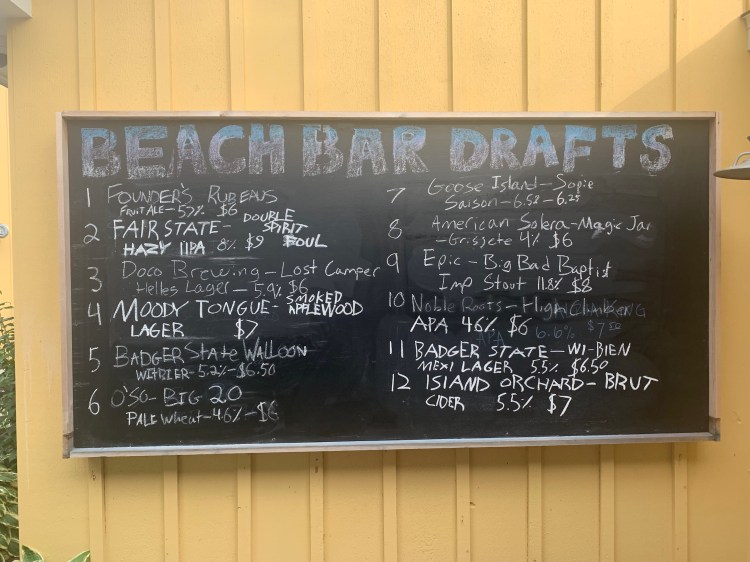 BEACH BAR DRAFTS
1 FOUNDER'S RUBEAUS
FRUIT ALE - 5.7% $6
2 FAIR STATE - DOUBLE SPIRIT FOUL
HAZY IIPA 8% $9
3 Doco Brewing - Lost Camper
Helles Lager - 5.4% $6
4 MOODY TONGUE - SMOKED APPLEWOOD
LAGER $7
5 BADGER State WALLOON
WITBIER - 5.2% - $6.50
6 O'SO - BIG 20
PALE Wheat - 4.6% - $6
7 Goose Island - Sopie
Saison - 6.5% - 6.25
8 American Solera - Magic Jar
- Grissete 4% $6
9 Epic - Big Bad Baptist
Imp Stout 11.8% $8
10 Noble Roots - High
APA 4.6% $6
APA 6.6% $7.50
11 BADGER STATE - WI-BIEN
MEXI LAGER 5.5% $6.50
12 ISLAND ORCHARD - BRUT
CIDER 5.5% $7